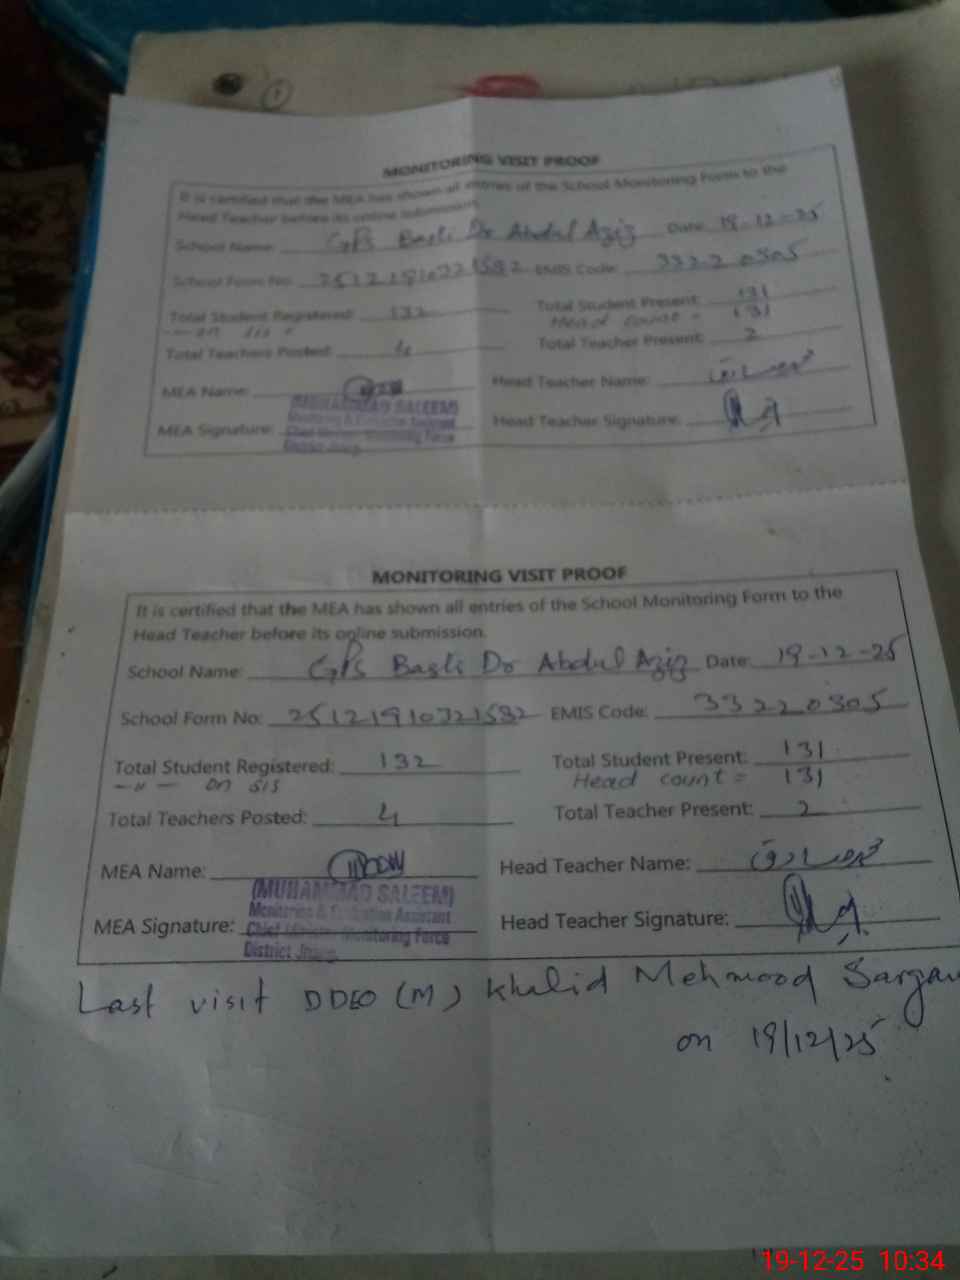 MONITORING VISIT PROOF
It is certified that the MEA has shown all entries of the School Monitoring Form to the
Head Teacher before its online submission.
School Name: GPS Basti Dr Abdul Aziz Date: 19-12-25
School Form No: 25121910721582 EMIS Code: 33220305
Total Student Registered: 132 Total Student Present: 131
—"— on SIS Head count = 131
Total Teachers Posted: 4 Total Teacher Present: 2
MEA Name: Head Teacher Name:
(MUHAMMAD SALEEM)
Monitoring & Evaluation Assistant
MEA Signature: Head Teacher Signature:
Chief Minister Monitoring Force
District Jhang
MONITORING VISIT PROOF
It is certified that the MEA has shown all entries of the School Monitoring Form to the
Head Teacher before its online submission.
School Name: GPS Basti Dr Abdul Aziz Date: 19-12-25
School Form No: 25121910721582 EMIS Code: 33220305
Total Student Registered: 132 Total Student Present: 131
—"— on SIS Head count = 131
Total Teachers Posted: 4 Total Teacher Present: 2
MEA Name: Head Teacher Name: محمد صادق
(MUHAMMAD SALEEM)
Monitoring & Evaluation Assistant
MEA Signature: Head Teacher Signature:
Chief Minister Monitoring Force
District Jhang
Last visit DDEO (M) Khalid Mehmood
on 19/12/25
19-12-25 10:34